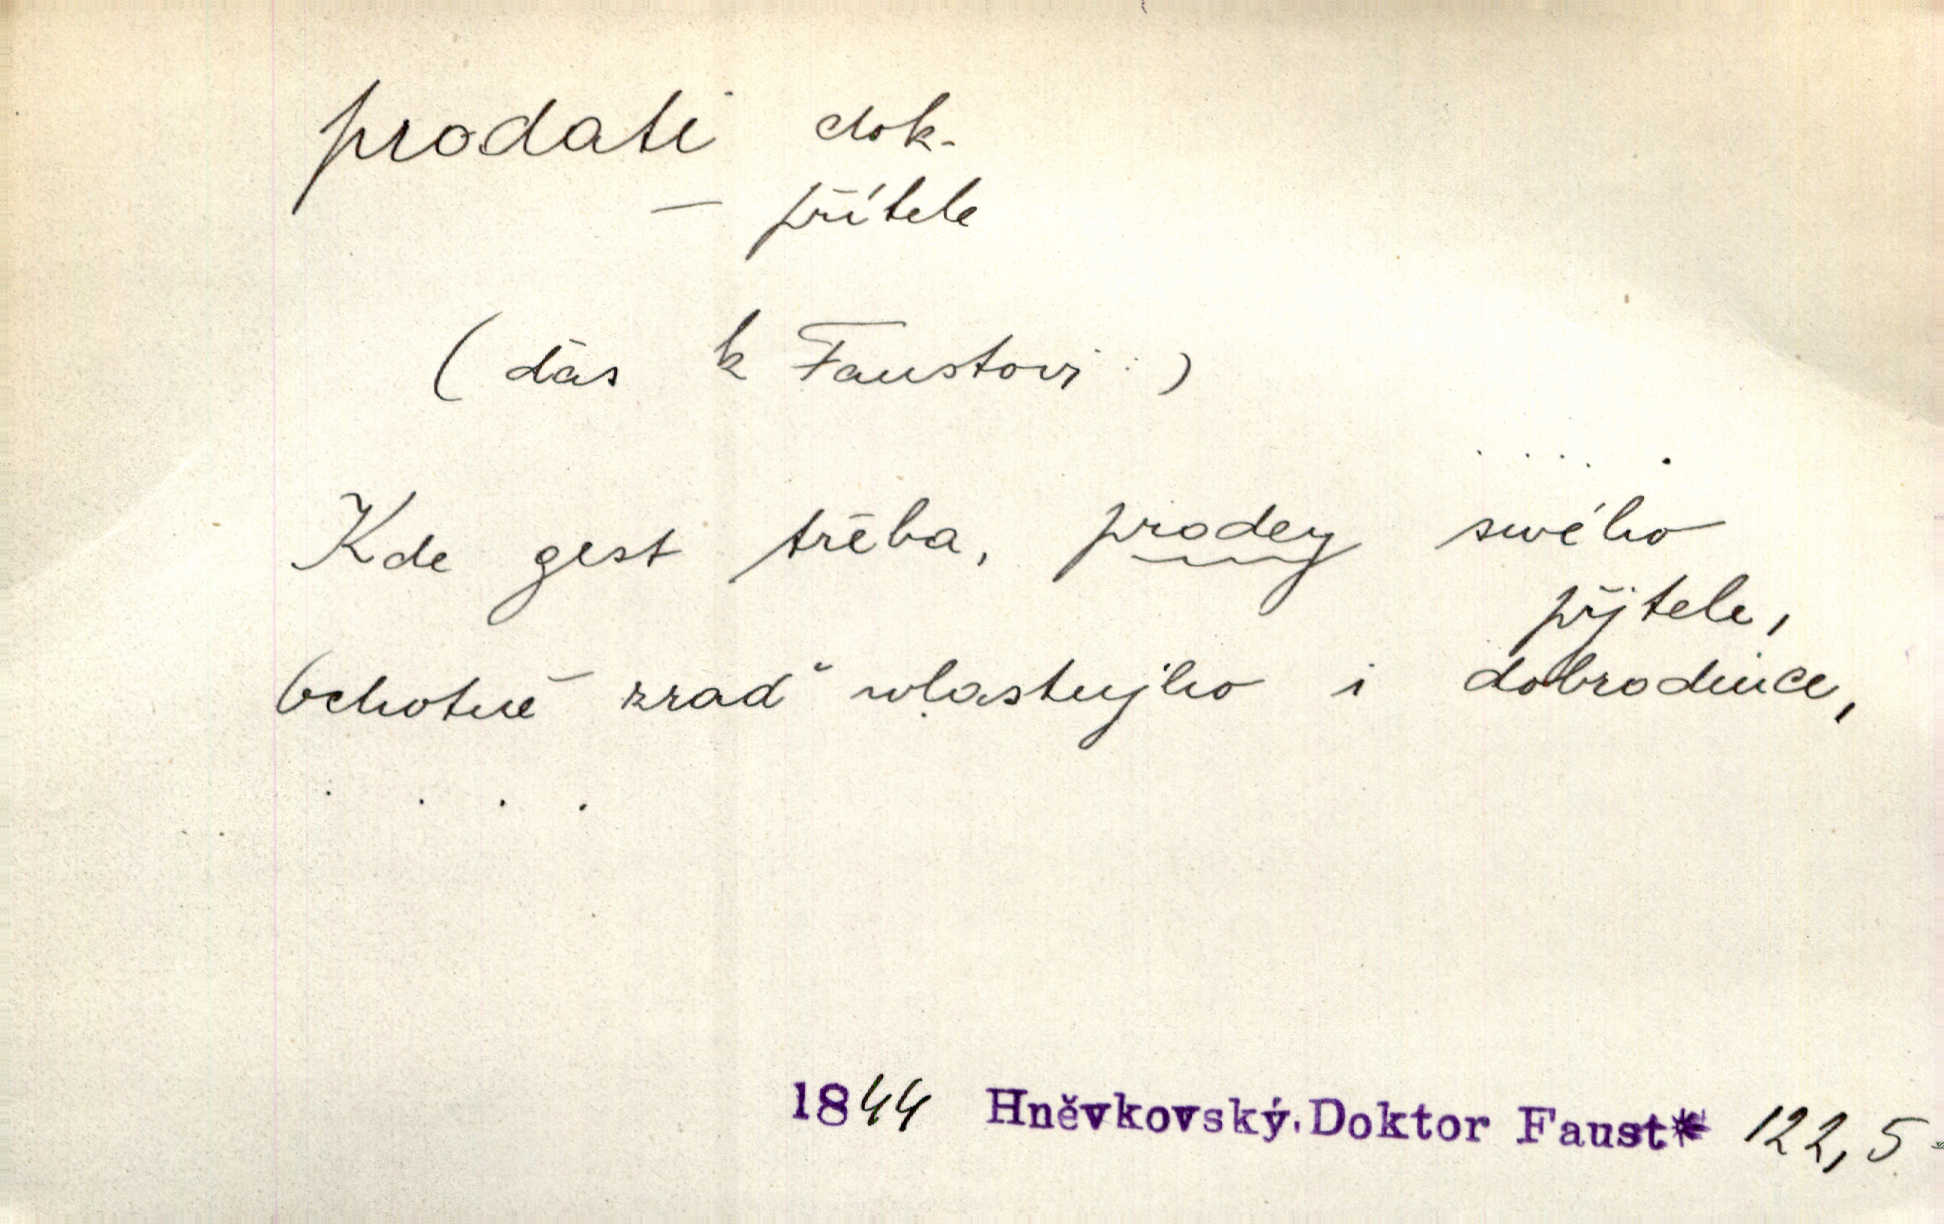 prodati dok.
— přítele
(ďas k Faustovi:)
. . . .
Kde gest třeba, prodey swého
přjtele,
ochotně zraď wlastnjho i dobrodince,
. . . .
1844 Hněvkovský, Doktor Faust* 122, 5